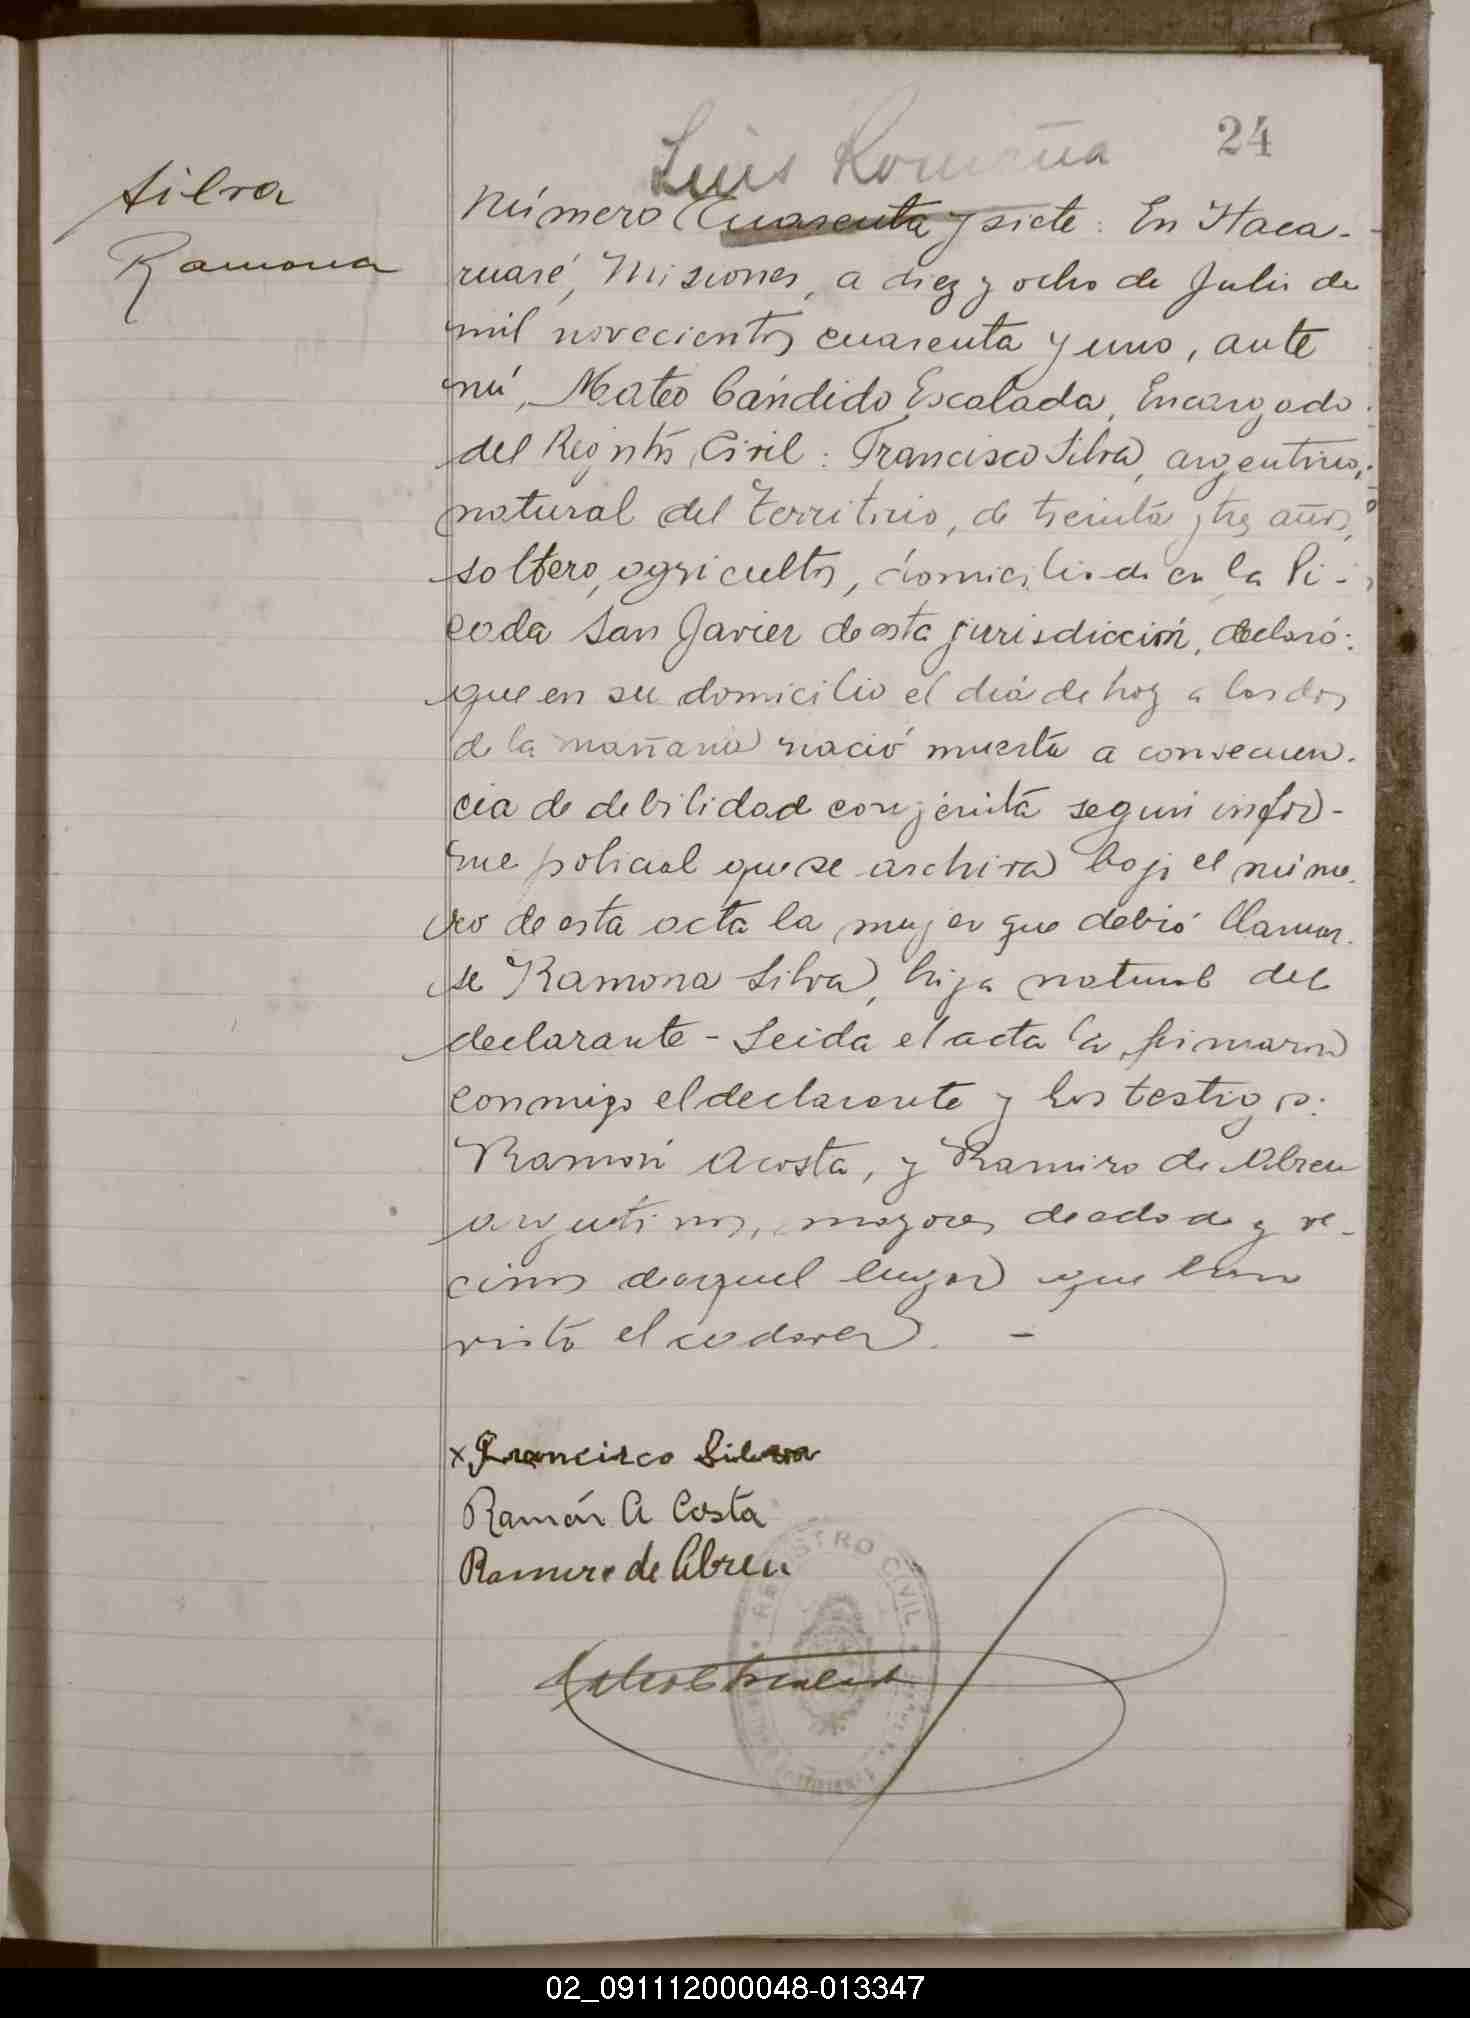 24
Luis Romaña
Silva
Ramona
Número Cuarenta y siete: En Itaca-
ruaré, Misiones, a diez y ocho de Julio de
mil novecientos cuarenta y uno, ante
mí, Mateo Cándido Escalada, Encargado
del Registro Civil: Francisco Silva, argentino,
natural del Territorio, de treinta y tres años,
soltero, agricultor, domiciliado en la Pi-
cada San Javier de esta jurisdicción, declaró:
que en su domicilio el día de hoy a las dos
de la mañana nació muerta a consecuen-
cia de debilidad conjénita según infor-
me policial que se archiva bajo el núme-
ro de esta acta la mujer que debió llamar-
se Ramona Silva, hija natural del
declarante - Leida el acta la firmaron
conmigo el declarante y los testigos:
Ramón Acosta, y Ramiro de Abreu
argentinos, mayores de edad y ve-
cinos de aquel lugar que han
visto el cadaver. -
x Francisco Silva
Ramón A Costa
Ramiro de Abreu
Mateo C Escalada
REGISTRO CIVIL
02_091112000048-013347